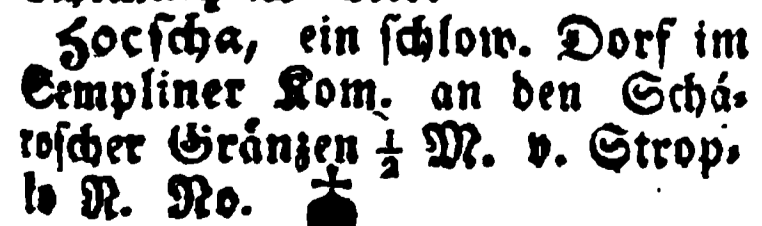 Hocſcha, ein ſchlow. Dorf im
Sempliner Kom. an den Schá⸗
roſcher Gränzen ½ M. v. Strop⸗
ko N. No.